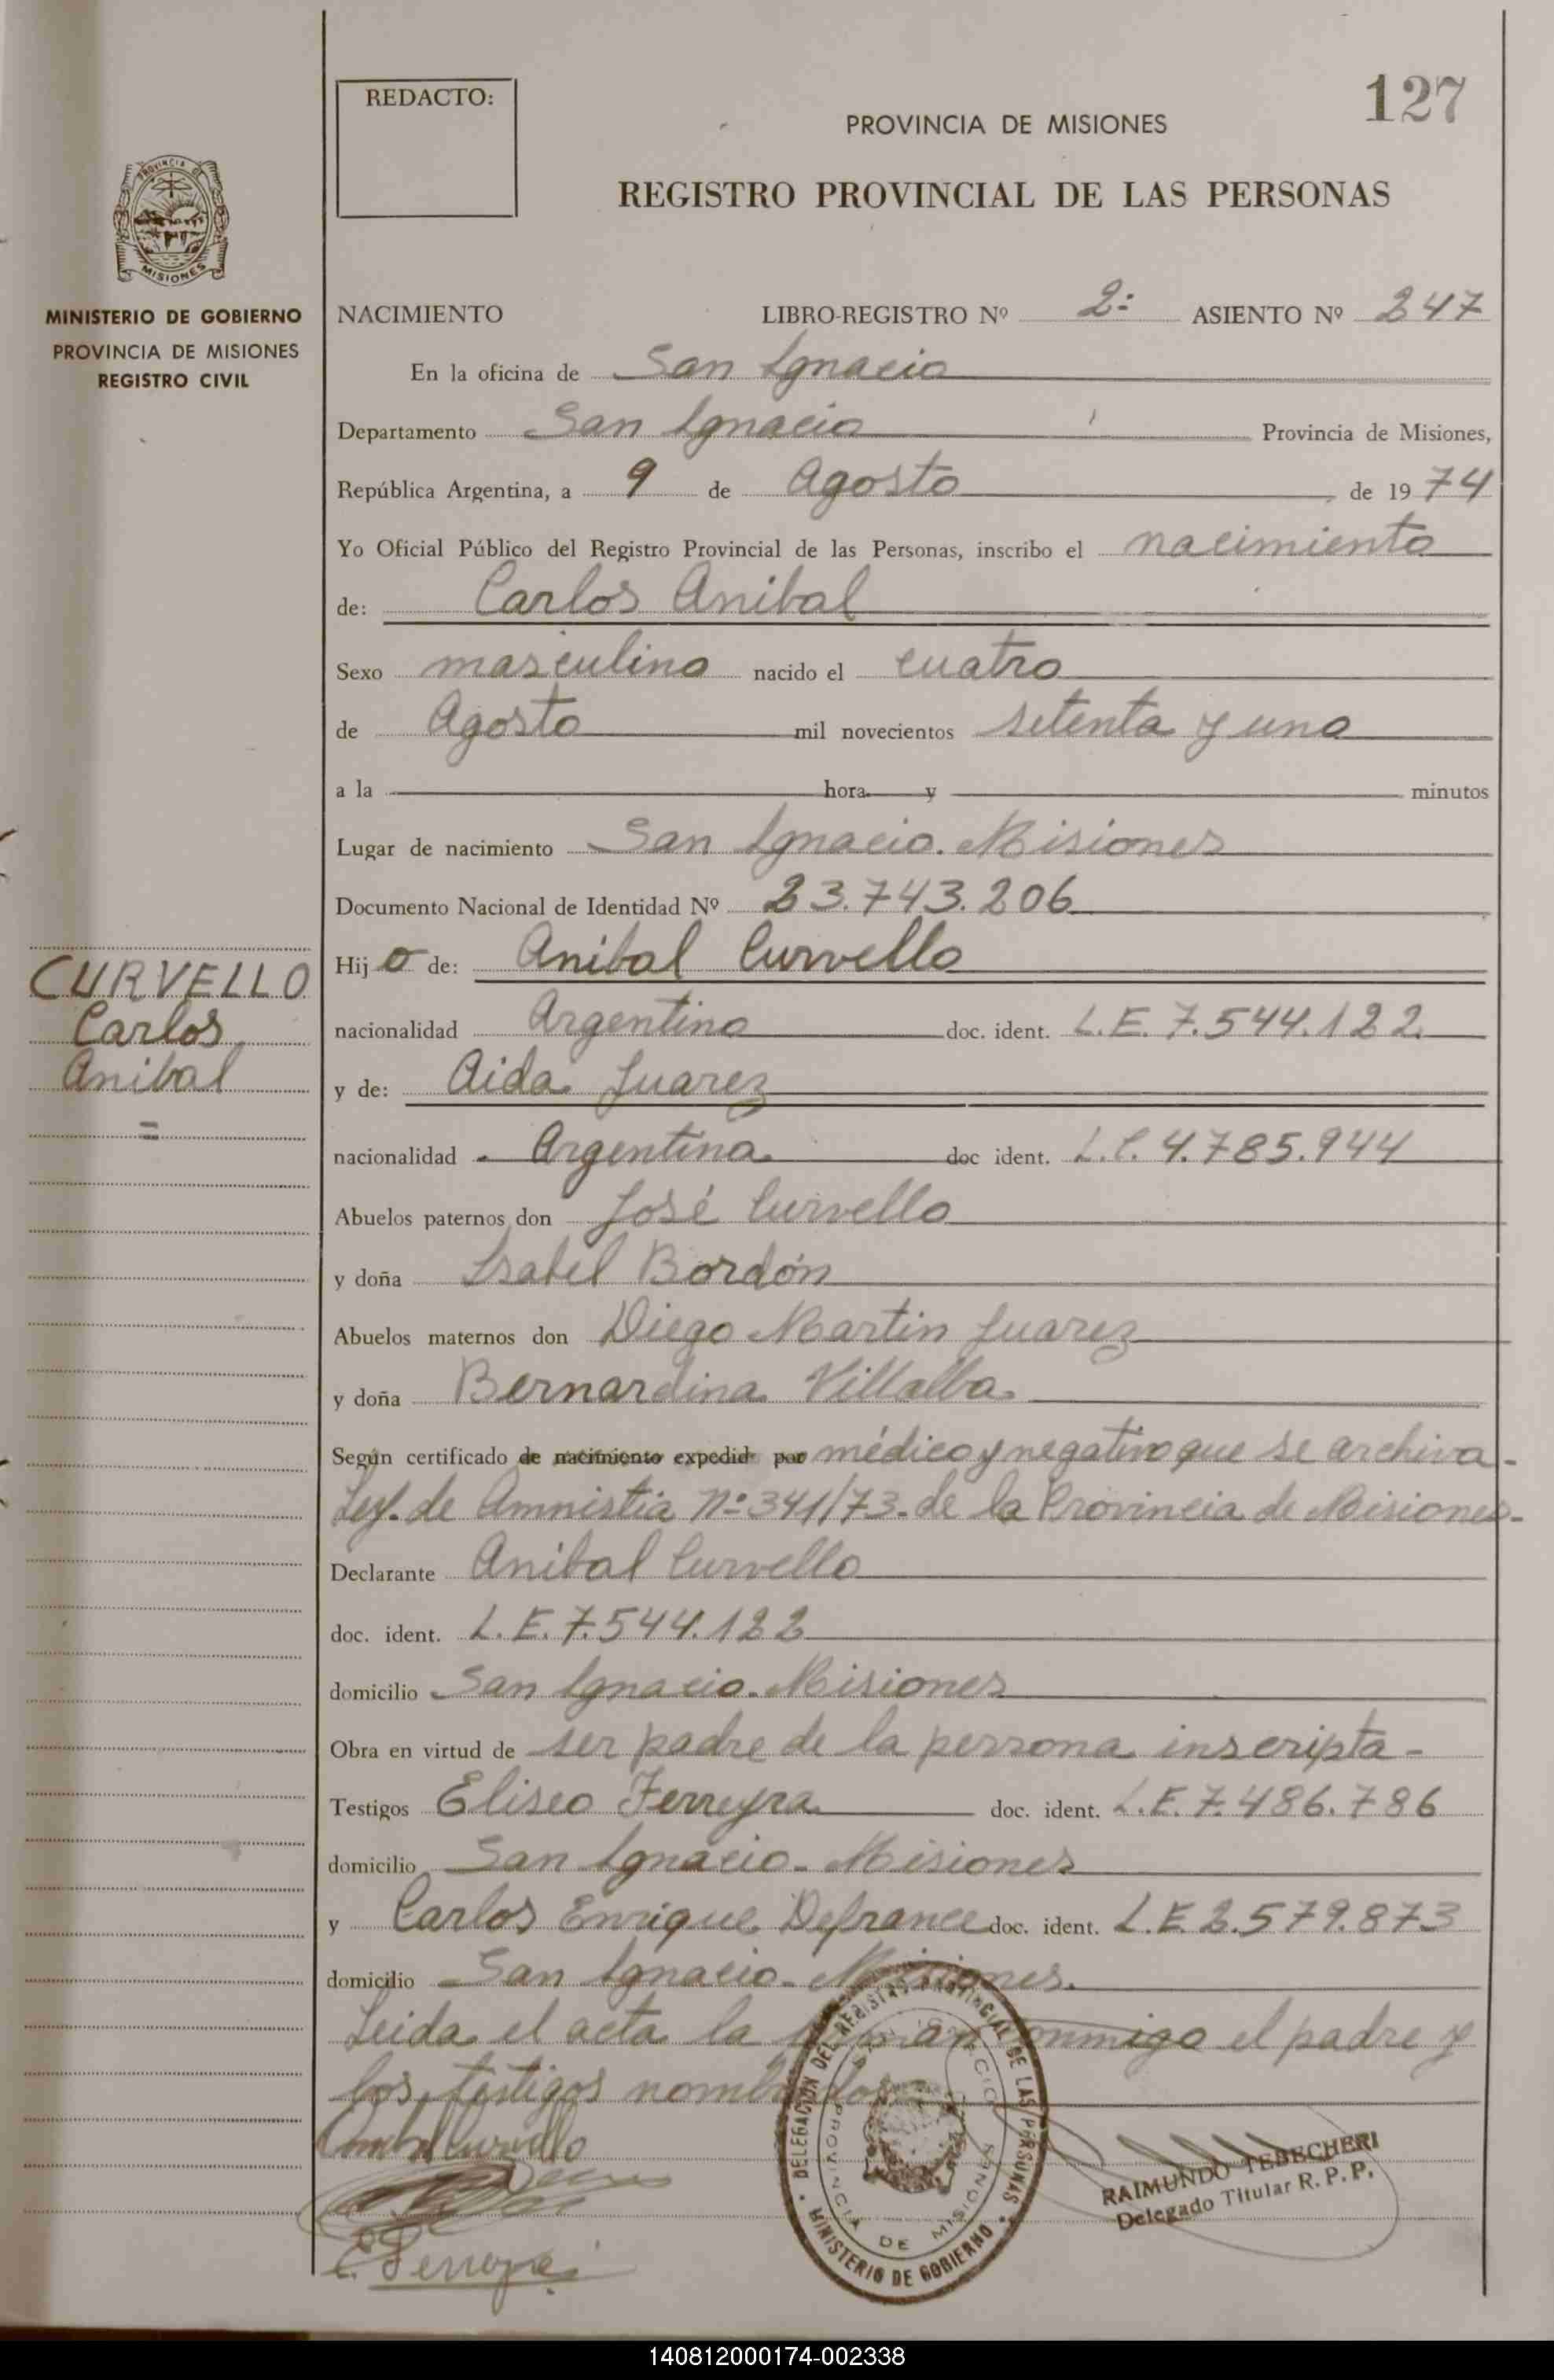 REDACTO:
127
PROVINCIA DE MISIONES
REGISTRO PROVINCIAL DE LAS PERSONAS
PROVINCIA DE
MISIONES
MINISTERIO DE GOBIERNO
PROVINCIA DE MISIONES
REGISTRO CIVIL
NACIMIENTO LIBRO-REGISTRO Nº 2: ASIENTO Nº 247
En la oficina de San Ignacio
Departamento San Ignacio Provincia de Misiones,
República Argentina, a 9 de Agosto, de 1974
Yo Oficial Público del Registro Provincial de las Personas, inscribo el nacimiento
de: Carlos Anibal
Sexo masculino nacido el cuatro
de Agosto mil novecientos setenta y uno
a la hora y minutos
Lugar de nacimiento San Ignacio. Misiones
Documento Nacional de Identidad Nº 23.743.206
CURVELLO
Carlos
Anibal
=
Hijo de: Anibal Curvello
nacionalidad Argentino doc. ident. L.E. 7.544.122
y de: Aida Juarez
nacionalidad Argentina doc ident. L.C. 4.785.944
Abuelos paternos don José Curvello
y doña Isabel Bordón
Abuelos maternos don Diego Martin Juarez
y doña Bernardina Villalba
Según certificado de nacimiento expedido por médico y negativo que se archiva-
Ley. de Amnistia Nº 341/73. de la Provincia de Misiones-
Declarante Anibal Curvello
doc. ident. L.E. 7.544.122
domicilio San Ignacio. Misiones
Obra en virtud de ser padre de la persona inscripta-
Testigos Eliseo Ferreyra doc. ident. L.E. 7.486.786
domicilio San Ignacio- Misiones
y Carlos Enrique Defrance doc. ident. L.E. 2.579.873
domicilio San Ignacio- Misiones.
Leida el acta la firman conmigo el padre y
los testigos nombrados
Anibal Curvello
E. Ferreyra
DELEGACION DEL REGISTRO PROVINCIAL DE LAS PERSONAS
MINISTERIO DE GOBIERNO
PROVINCIA DE MISIONES
RAIMUNDO TEBECHERI
Delegado Titular R. P. P.
140812000174-002338